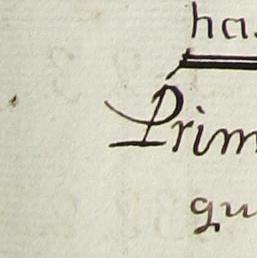 ha
Prim
qu